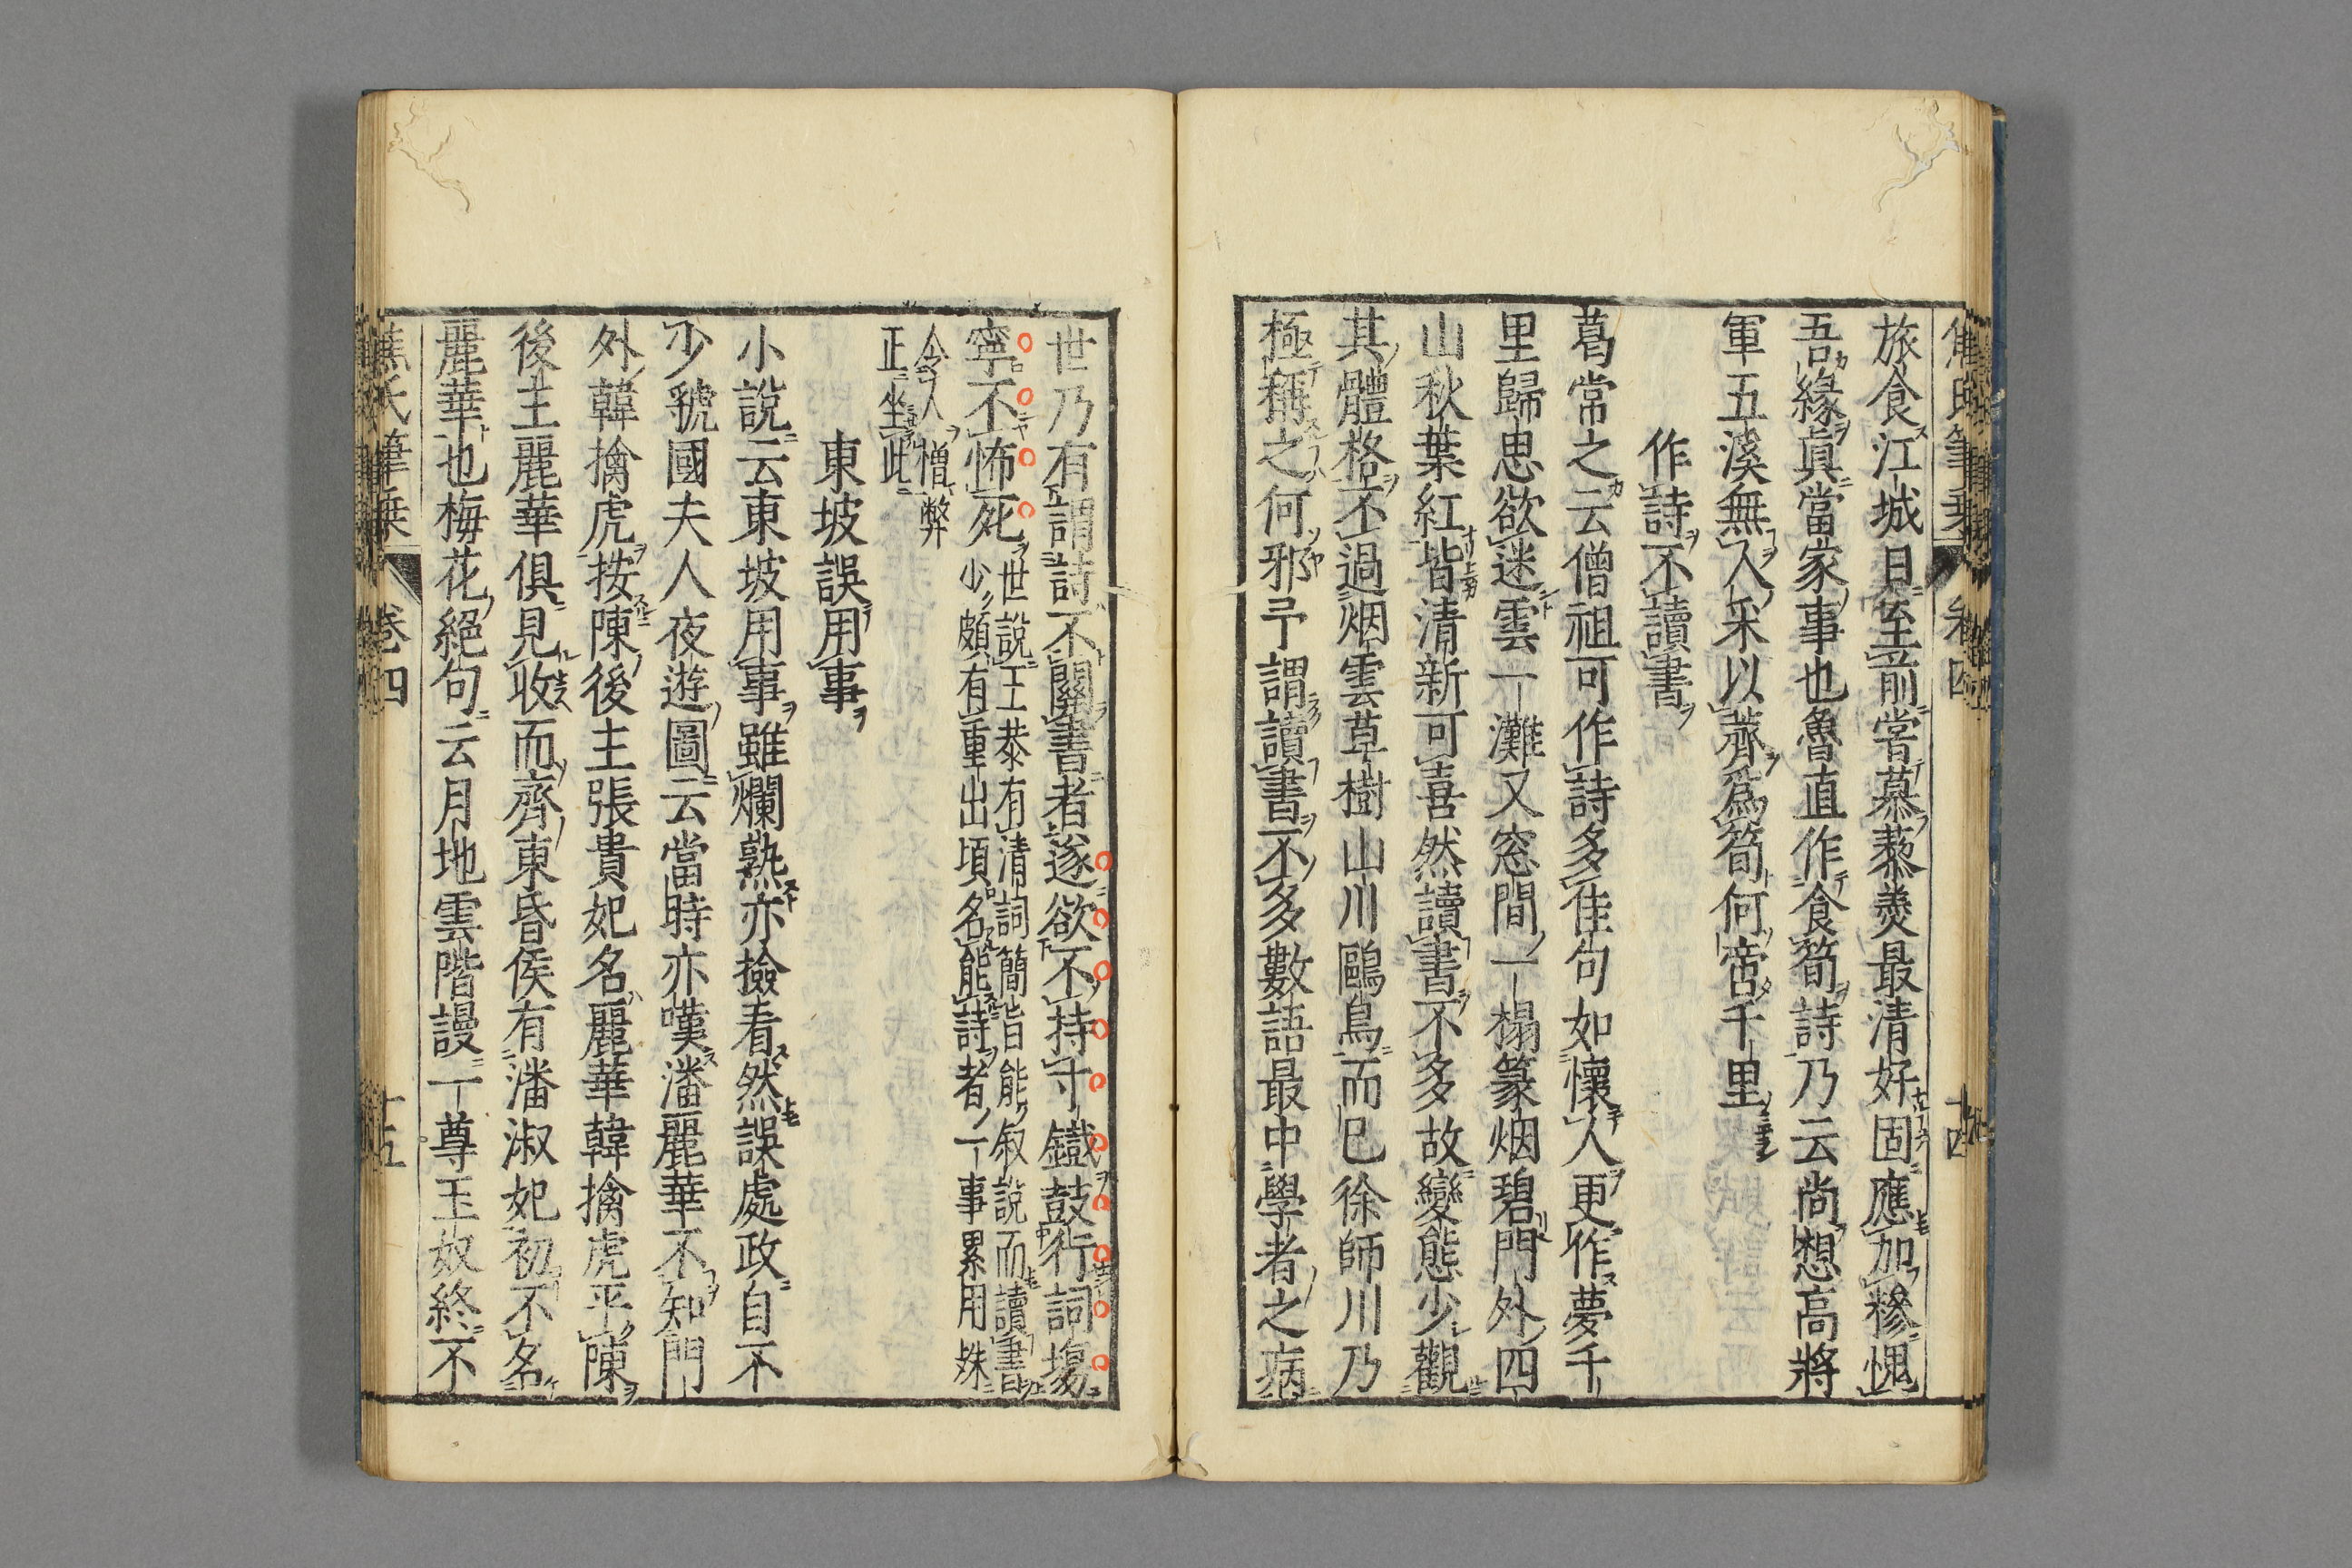 焦氏筆乗 卷四 十四
旅食江城日至前嘗慕藜羮最清好固應加糝愧
吾緣眞當家事也魯直作食筍詩乃云尚想高將
軍五溪無人采以薺爲筍何啻千里
作詩不讀書
葛常之云僧祖可作詩多佳句如懷人更作夢千
里歸思欲迷雲一灘又窓間一榻篆烟碧門外四
山秋葉紅皆清新可喜然讀書不多故變態少觀
其體格不過烟雲草樹山川鷗鳥而已徐師川乃
極稱之何邪予謂讀書不多數語最中學者之病
世乃有謂詩不關書者遂欲不持寸鐵鼓行詞塲
寧不怖死
世說王恭有清詞簡旨能叙說而讀書
少頗有重出頃名能詩者一事累用姝
令人憎弊
正坐此
東坡誤用事
小說云東坡用事雖爛熟亦撿看然誤處政自不
少虢國夫人夜遊圖云當時亦嘆潘麗華不知門
外韓擒虎按陳後主張貴妃名麗華韓擒虎平陳
後主麗華俱見收而齊東昏侯有潘淑妃初不名
麗華也梅花絕句云月地雲階謾一尊玉奴終不
焦氏筆乗 卷四 十五